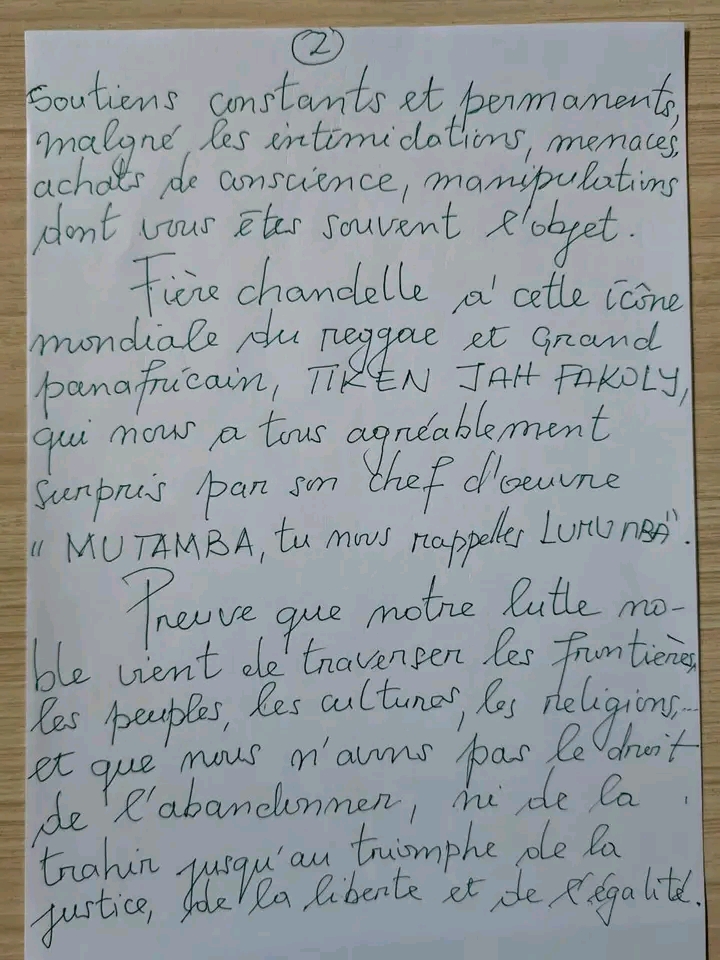 2
Soutiens constants et permanents,
malgré les intimidations, menaces,
achats de conscience, manipulations
dont vous êtes souvent l'objet.
Fière chandelle à cette icône
mondiale du reggae et Grand
panafricain, TIKEN JAH FAKOLY,
qui nous a tous agréablement
surpris par son chef d'oeuvre
" MUTAMBA, tu nous rappelles LUMUMBA".
Preuve que notre lutte no-
ble vient de traverser les frontières,
les peuples, les cultures, les religions,...
et que nous n'avons pas le droit
de l'abandonner, ni de la
trahir jusqu'au triomphe de la
justice, de la liberté et de l'égalité.